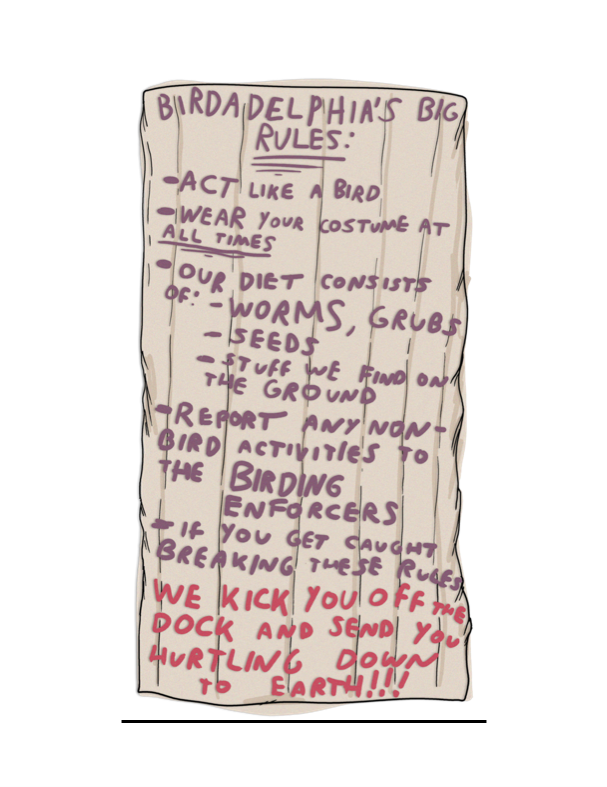 BIRDADELPHIA'S BIG
RULES:
-ACT LIKE A BIRD
-WEAR YOUR COSTUME AT
ALL TIMES
-OUR DIET CONSISTS
OF: -WORMS, GRUBS
-SEEDS
-STUFF WE FIND ON
THE GROUND
-REPORT ANY NON-
BIRD ACTIVITIES TO
THE BIRDING
ENFORCERS
-IF YOU GET CAUGHT
BREAKING THESE RULES
WE KICK YOU OFF THE
DOCK AND SEND YOU
HURTLING DOWN
TO EARTH!!!